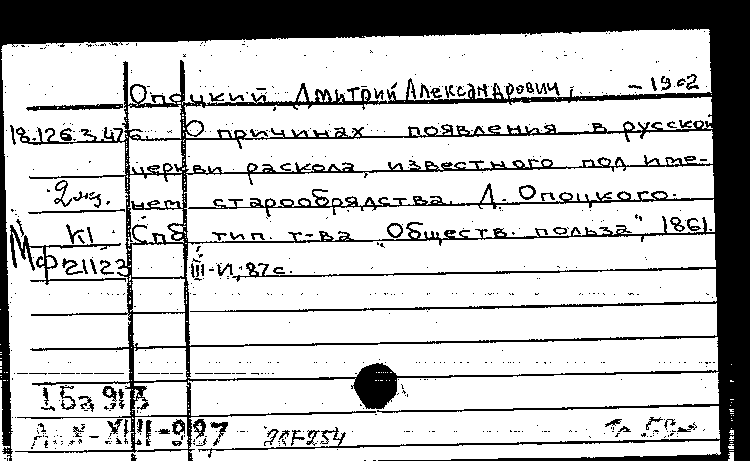 Опоцкий, Дмитрий Александрович, – 1902
18.126.3.47б О причинах появления в русской
церкви раскола, известного под име-
2 экз. нем старообрядства. Д. Опоцкого.
К1 Спб тип. т-ва „Обществ. польза", 1861.
Мф 21123 III-VI; 87 с.
1 Ба 913